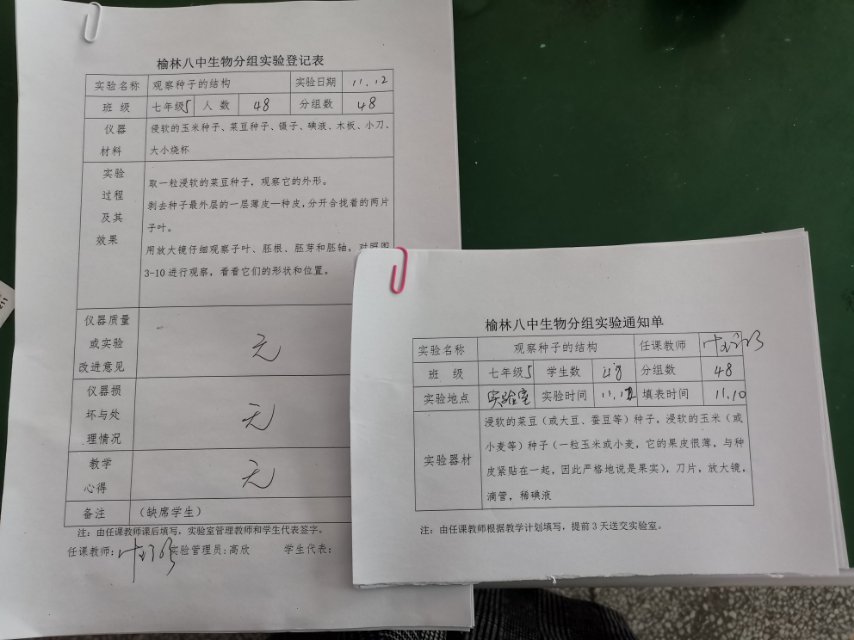 榆林八中生物分组实验登记表
实验名称 观察种子的结构 实验日期 11.12
班 级 七年级5 人 数 48 分组数 48
仪器
材料
浸软的玉米种子、菜豆种子、镊子、碘液、木板、小刀、
大小烧杯
实验
过程
及其
效果
取一粒浸软的菜豆种子，观察它的外形。
剥去种子最外层的一层薄皮—种皮，分开合拢着的两片
子叶。
用放大镜仔细观察子叶、胚根、胚芽和胚轴。对照图
3-10进行观察，看看它们的形状和位置。
仪器质量
或实验
改进意见
无
仪器损
坏与处
理情况
无
教学
心得
无
备注 （缺席学生）
注：由任课教师课后填写，实验室管理教师和学生代表签字。
任课教师： 实验管理员:高欣 学生代表：
榆林八中生物分组实验通知单
实验名称 观察种子的结构 任课教师
班 级 七年级5 学生数 48 分组数 48
实验地点 实验室 实验时间 11.12 填表时间 11.10
实验器材
浸软的菜豆（或大豆、蚕豆等）种子，浸软的玉米（或
小麦等）种子（一粒玉米或小麦，它的果皮很薄，与种
皮紧贴在一起，因此严格地说是果实），刀片，放大镜，
滴管，稀碘液
注：由任课教师根据教学计划填写，提前3天送交实验室。